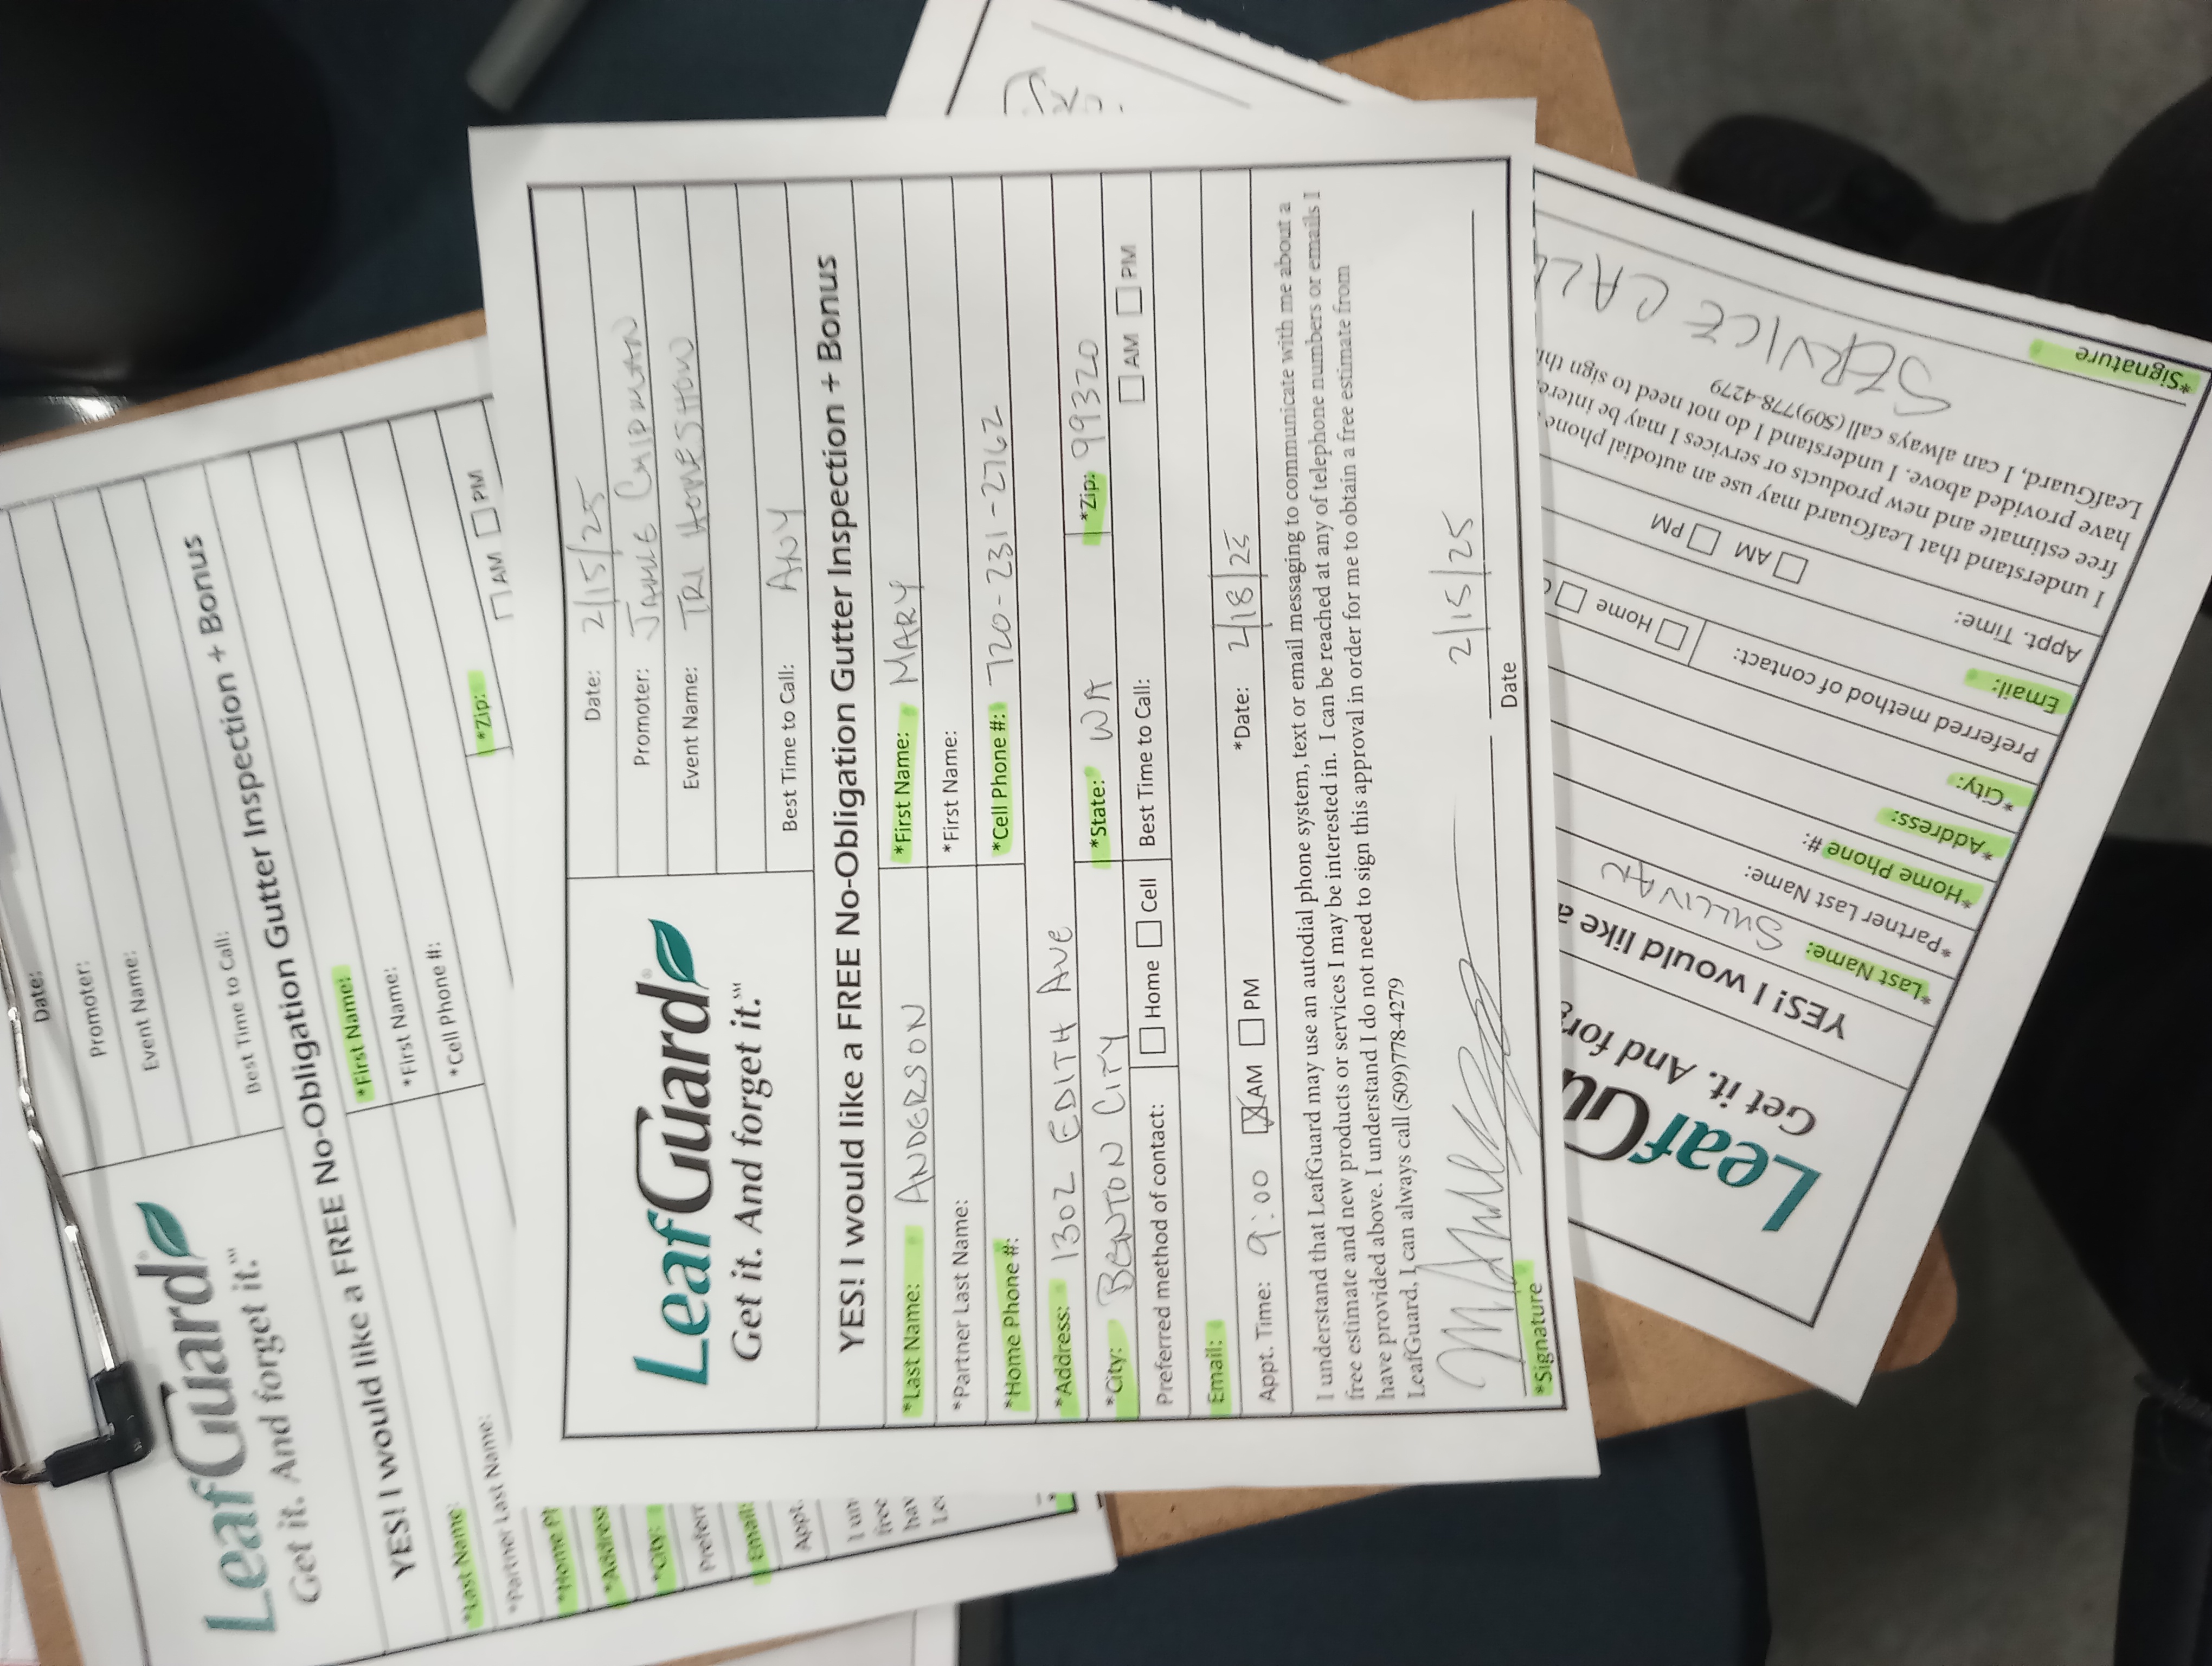 Date:
Promoter:
Event Name:
LeafGuard®
Get it. And forget it.℠
Best Time to Call:
YES! I would like a FREE No-Obligation Gutter Inspection + Bonus
*Last Name: *First Name:
*Partner Last Name: *First Name:
*Home Ph *Cell Phone #:
*Address
*City: *Zip:
Preferr AM PM
Email:
Appt.
I un
free
hav
Lea
LeafGuard®
Get it. And forget it.℠
Date: 2/15/25
Promoter: JAMIE CHIPMAN
Event Name: TRI HOMESHOW
Best Time to Call: ANY
YES! I would like a FREE No-Obligation Gutter Inspection + Bonus
*Last Name: ANDERSON *First Name: MARY
*Partner Last Name: *First Name:
*Home Phone #: *Cell Phone #: 720-231-2762
*Address: 1302 EDITH AVE
*City: BENTON CITY *State: WA *Zip: 99320
Preferred method of contact: Home Cell Best Time to Call: AM PM
Email:
Appt. Time: 9:00 AM PM *Date: 2/18/25
I understand that LeafGuard may use an autodial phone system, text or email messaging to communicate with me about a
free estimate and new products or services I may be interested in. I can be reached at any of telephone numbers or emails I
have provided above. I understand I do not need to sign this approval in order for me to obtain a free estimate from
LeafGuard, I can always call (509)778-4279
2/15/25
*Signature Date
LeafGu
Get it. And forg
YES! I would like a
*Last Name: SULLIVAN
*Partner Last Name:
*Home Phone #:
*Address:
*City:
Preferred method of contact: Home
Email:
Appt. Time: AM PM
I understand that LeafGuard may use an autodial phone
free estimate and new products or services I may be intere
have provided above. I understand I do not need to sign thi
LeafGuard, I can always call (509)778-4279
SERVICE CALL
*Signature